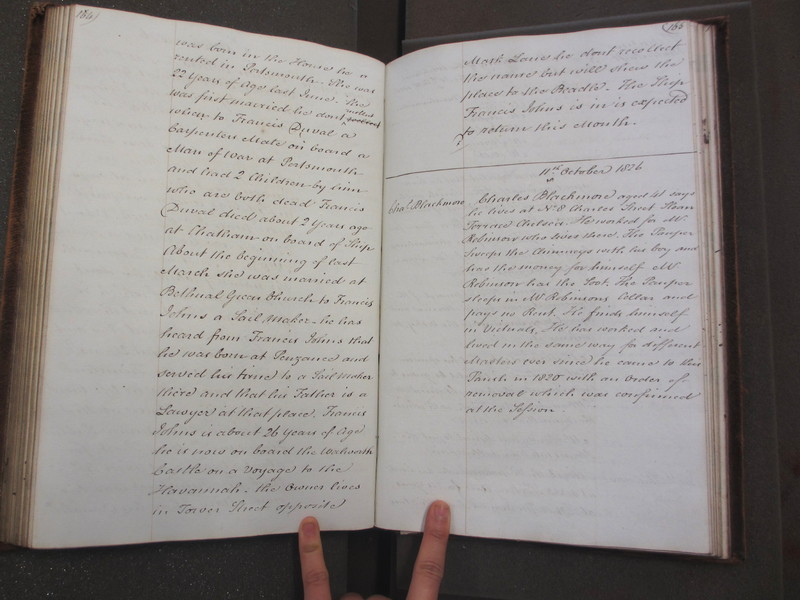 164)
was born in the House he
rented in Portsmouth. She was
22 Years of Age last June. She
was first married he dont
recollect
when to Francis Duval a
Carpenters Mate on board a
Man of War at Portsmouth
and had 2 Children by him
who are both dead Francis
Duval died about 2 Years ago
at Chatham on board of Ship
About the beginning of last
March she was married at
Bethnal Green Church to Francis
Johns a Sail Maker - he has
heard from Francis Johns that
he was born at Penzance and
served his time to a Sail Maker
there and that his Father is a
Lawyer at that place. Francis
Johns is about 26 Years of Age
he is now on board the Walworth
Castle on a Voyage to the
Havannah. the Owner lives
in Tower Street opposite
(166
Mark Lane he dont recollect
the name but will shew the
place to the Beadle. The Ship
Francis Johns is in is expected
to return this Month.
11th October 1826
Chas. Blackmore
Charles Blackmore aged 41 says
he lives at No. 8 Charles Street
Terrace Chelsea. He worked for Mr
Robinson who lives there. The Pauper
sweeps the Chimneys with his boy and
has the money for himself Mr
Robinson has the Soot. The Pauper
sleeps in Mr Robinsons Cellar and
pays no Rent. He finds himself
in Victuals, He has worked and
lived in the same way for different
Masters ever since he came to this
Parish in 1820 with an order of
removal which was confirmed
at the Session